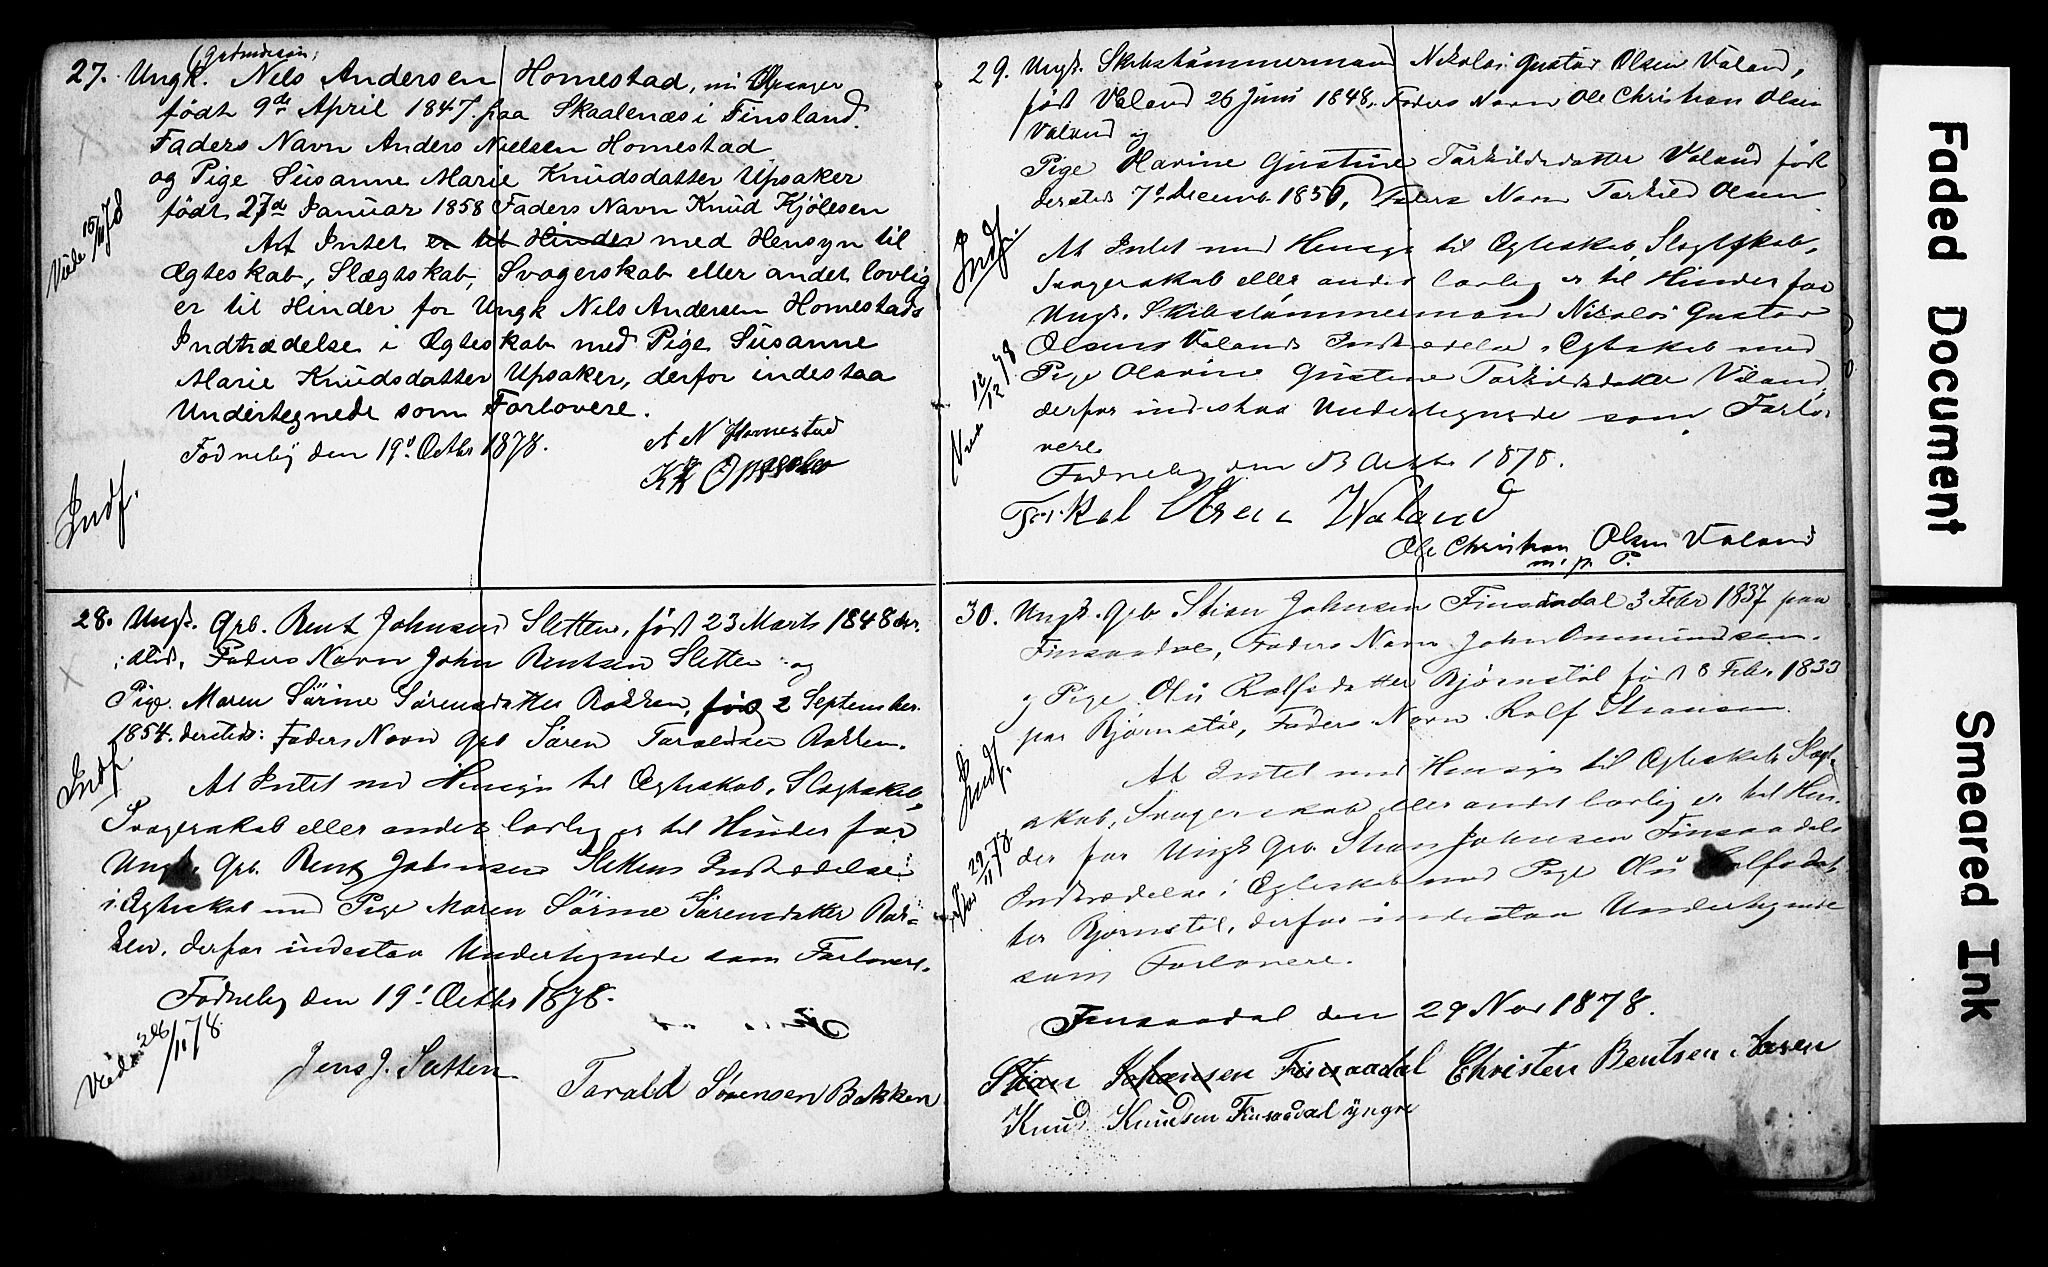 (Gaardmandssøn,
27. Ungk. Nels Andersen Homestad, nu Upsager
født 9de April 1847. paa Skaalenæs i Finsland.
Faders Navn Anders Nielsen Homestad
og Pige Susanne Marie Knudsdatter Upsaker
født 27d Januar 1858 Faders Navn Knud Kjølesen
At Intet er til Hinder med Hensyn til
Ægteskab, Slægtskab, Svogerskab eller andet lovlig
er til Hinder for Ungk Nils Andersen Homestads
Indtrædelse i Ægteskab med Pige Susanne
Marie Knudsdatter Upsaker, derfor indestaa
Undertegnede som Forlovere.
Fodneby den 19d Octbr 1878.
A N Homestad
KK Opsaker
Viede 15/11 78
Indf.
28. Ungk. Grb. Bent Johnsen Sletten, født 23 Marts 1848 der-
sted, Faders Navn John Bentsen Sletten og
Pige Maren Sørine Sørensdatter Bakken, født 2 September
1854. dersteds: Faders Navn Grb Søren Taraldsen Bakken.
At Intet med Hensyn til Ægteskab, Slægtskab,
Svogerskab eller andet lovlig er til Hinder for
Ungk. Grb. Bent Johnsen Slettens Indtrædelse
i Ægteskab med Pige Maren Sørine Sørensdatter Bak-
ken, derfor indestaa Undertegnede som Forlovere.
Fodneby den 19d Octbr 1878.
Jens J. Sletten
Tarald Sørensen Bakken
Indf.
Viede 26/11 78
29. Ungk. Skibstømmermand Nikolai Gustav Olsen Valand,
født Valand 26 Juni 1848. Faders Navn Ole Christian Olsen
Valand og
Pige Olavine Gustine Tarkildsdatter Valand født
dersteds 7d Decemb 1850, Faders Navn Tarkild Olsen
At Intet med Hensyn til Ægteskab, Slægtskab,
Svogerskab eller andet lovlig er til Hinder for
Ungk. Skibstømmermand Nikolai Gustav
Olsens Valands Indtrædelse i Ægteskab med
Pige Olavine Gustine Tarkildsdatter Valand,
derfor indestaa Undertegnede som Forlo-
vere
Fodneby den Octbr 1878.
Tarkel Olsen Waland
Ole Christian Olsen Valand
m. p. P.
Indf.
Viede 12/12 78
30. Ungk. Grb Stian Johnsen Finsaadal 3 Febr 1837 paa
Finsaadal, Faders Navn John Ommundsen.
og Pige Olu Rolfsdatter Bjørnstøl født 8 Febr 1833
paa Bjørnstøl, Faders Navn Rolf Stiansen.
At Intet med Hensyn til Ægteskab, Slægt-
skab, Svogerskab eller andet lovlig er til Hin-
der for Ungk Grb. Stian Johnsen Finsaadals
Indtrædelse i Ægteskab med Pige Olu Rolfsdat-
ter Bjørnstøl, derfor indestaa Undertegnede
som Forlovere.
Finsaadal den 29 Nov 1878.
Stian Johansen Finsaadal Christen Bentsen Aasen
Knud Knudsen Finsaadal yngre
Indf.
Viede 29/11 78
Faded Document
Smeared Ink